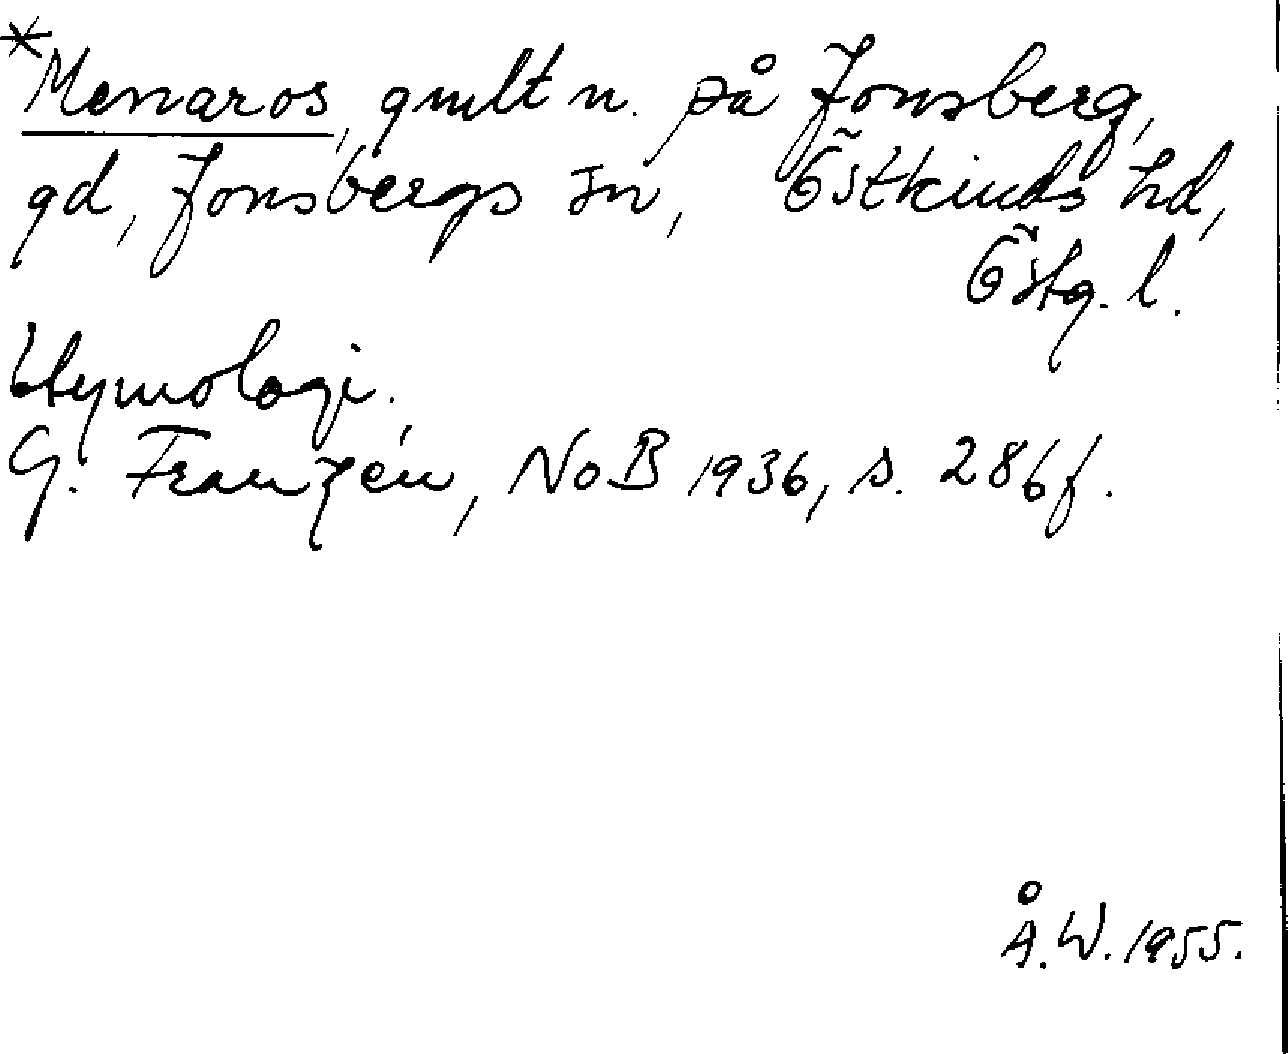 *Menaros, gmlt n. på Jonsberg,
gd, Jonsbergs sn, Östkinds hd,
Östg. l.
Etymologi.
G. Franzén, NoB 1936, s. 286f.
Å.W. 1955.